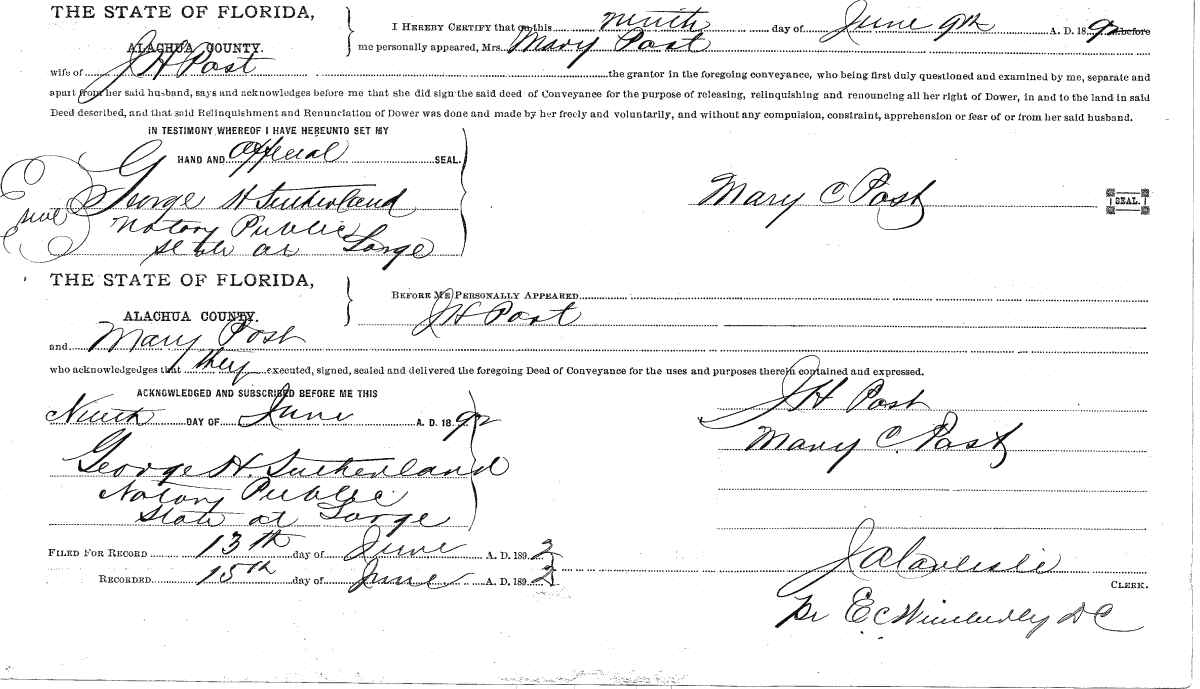 THE STATE OF FLORIDA,
ALACHUA COUNTY.
I HEREBY CERTIFY that on this ninth day of June 9th A. D. 1892 before
me personally appeared, Mrs. Mary Post
wife of J H Post the grantor in the foregoing conveyance, who being first duly questioned and examined by me, separate and
apart from her said husband, says and acknowledges before me that she did sign the said deed of Conveyance for the purpose of releasing, relinquishing and renouncing all her right of Dower, in and to the land in said
Deed described, and that said Relinquishment and Renunciation of Dower was done and made by her freely and voluntarily, and without any compulsion, constraint, apprehension or fear of or from her said husband.
IN TESTIMONY WHEREOF I HAVE HEREUNTO SET MY
HAND AND official SEAL.
George H Sutherland
Mary C Post
SEAL.
Notary Public
State at Large
THE STATE OF FLORIDA,
ALACHUA COUNTY.
BEFORE ME PERSONALLY APPEARED
J H Post
and Mary Post
who acknowledges that they executed, signed, sealed and delivered the foregoing Deed of Conveyance for the uses and purposes therein contained and expressed.
ACKNOWLEDGED AND SUBSCRIBED BEFORE ME THIS
Ninth DAY OF June A. D. 1892
J H Post
Mary C. Post
George H. Sutherland
Notary Public
State at Large
FILED FOR RECORD 13th day of June A. D. 1892
RECORDED 15th day of June A. D. 1892
J A Carlisle
CLERK.
Pr E C Wimberly D C